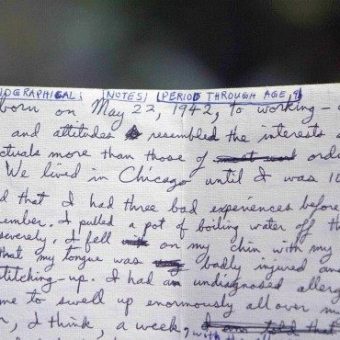 OGRAPHICAL NOTES PERIOD THROUGH AGE 9
born on May 22, 1942, to working-
and attitudes resembled the interests
ctuals more than those of ord
We lived in Chicago until I was
d that I had three bad experiences before
member. I pulled a pot of boiling water off th
severely. I fell on my chin with my
that my tongue was badly injured an
titching-up. I had an undiagnosed allerg
me to swell up enormously all over m
r, I think, a week, with the